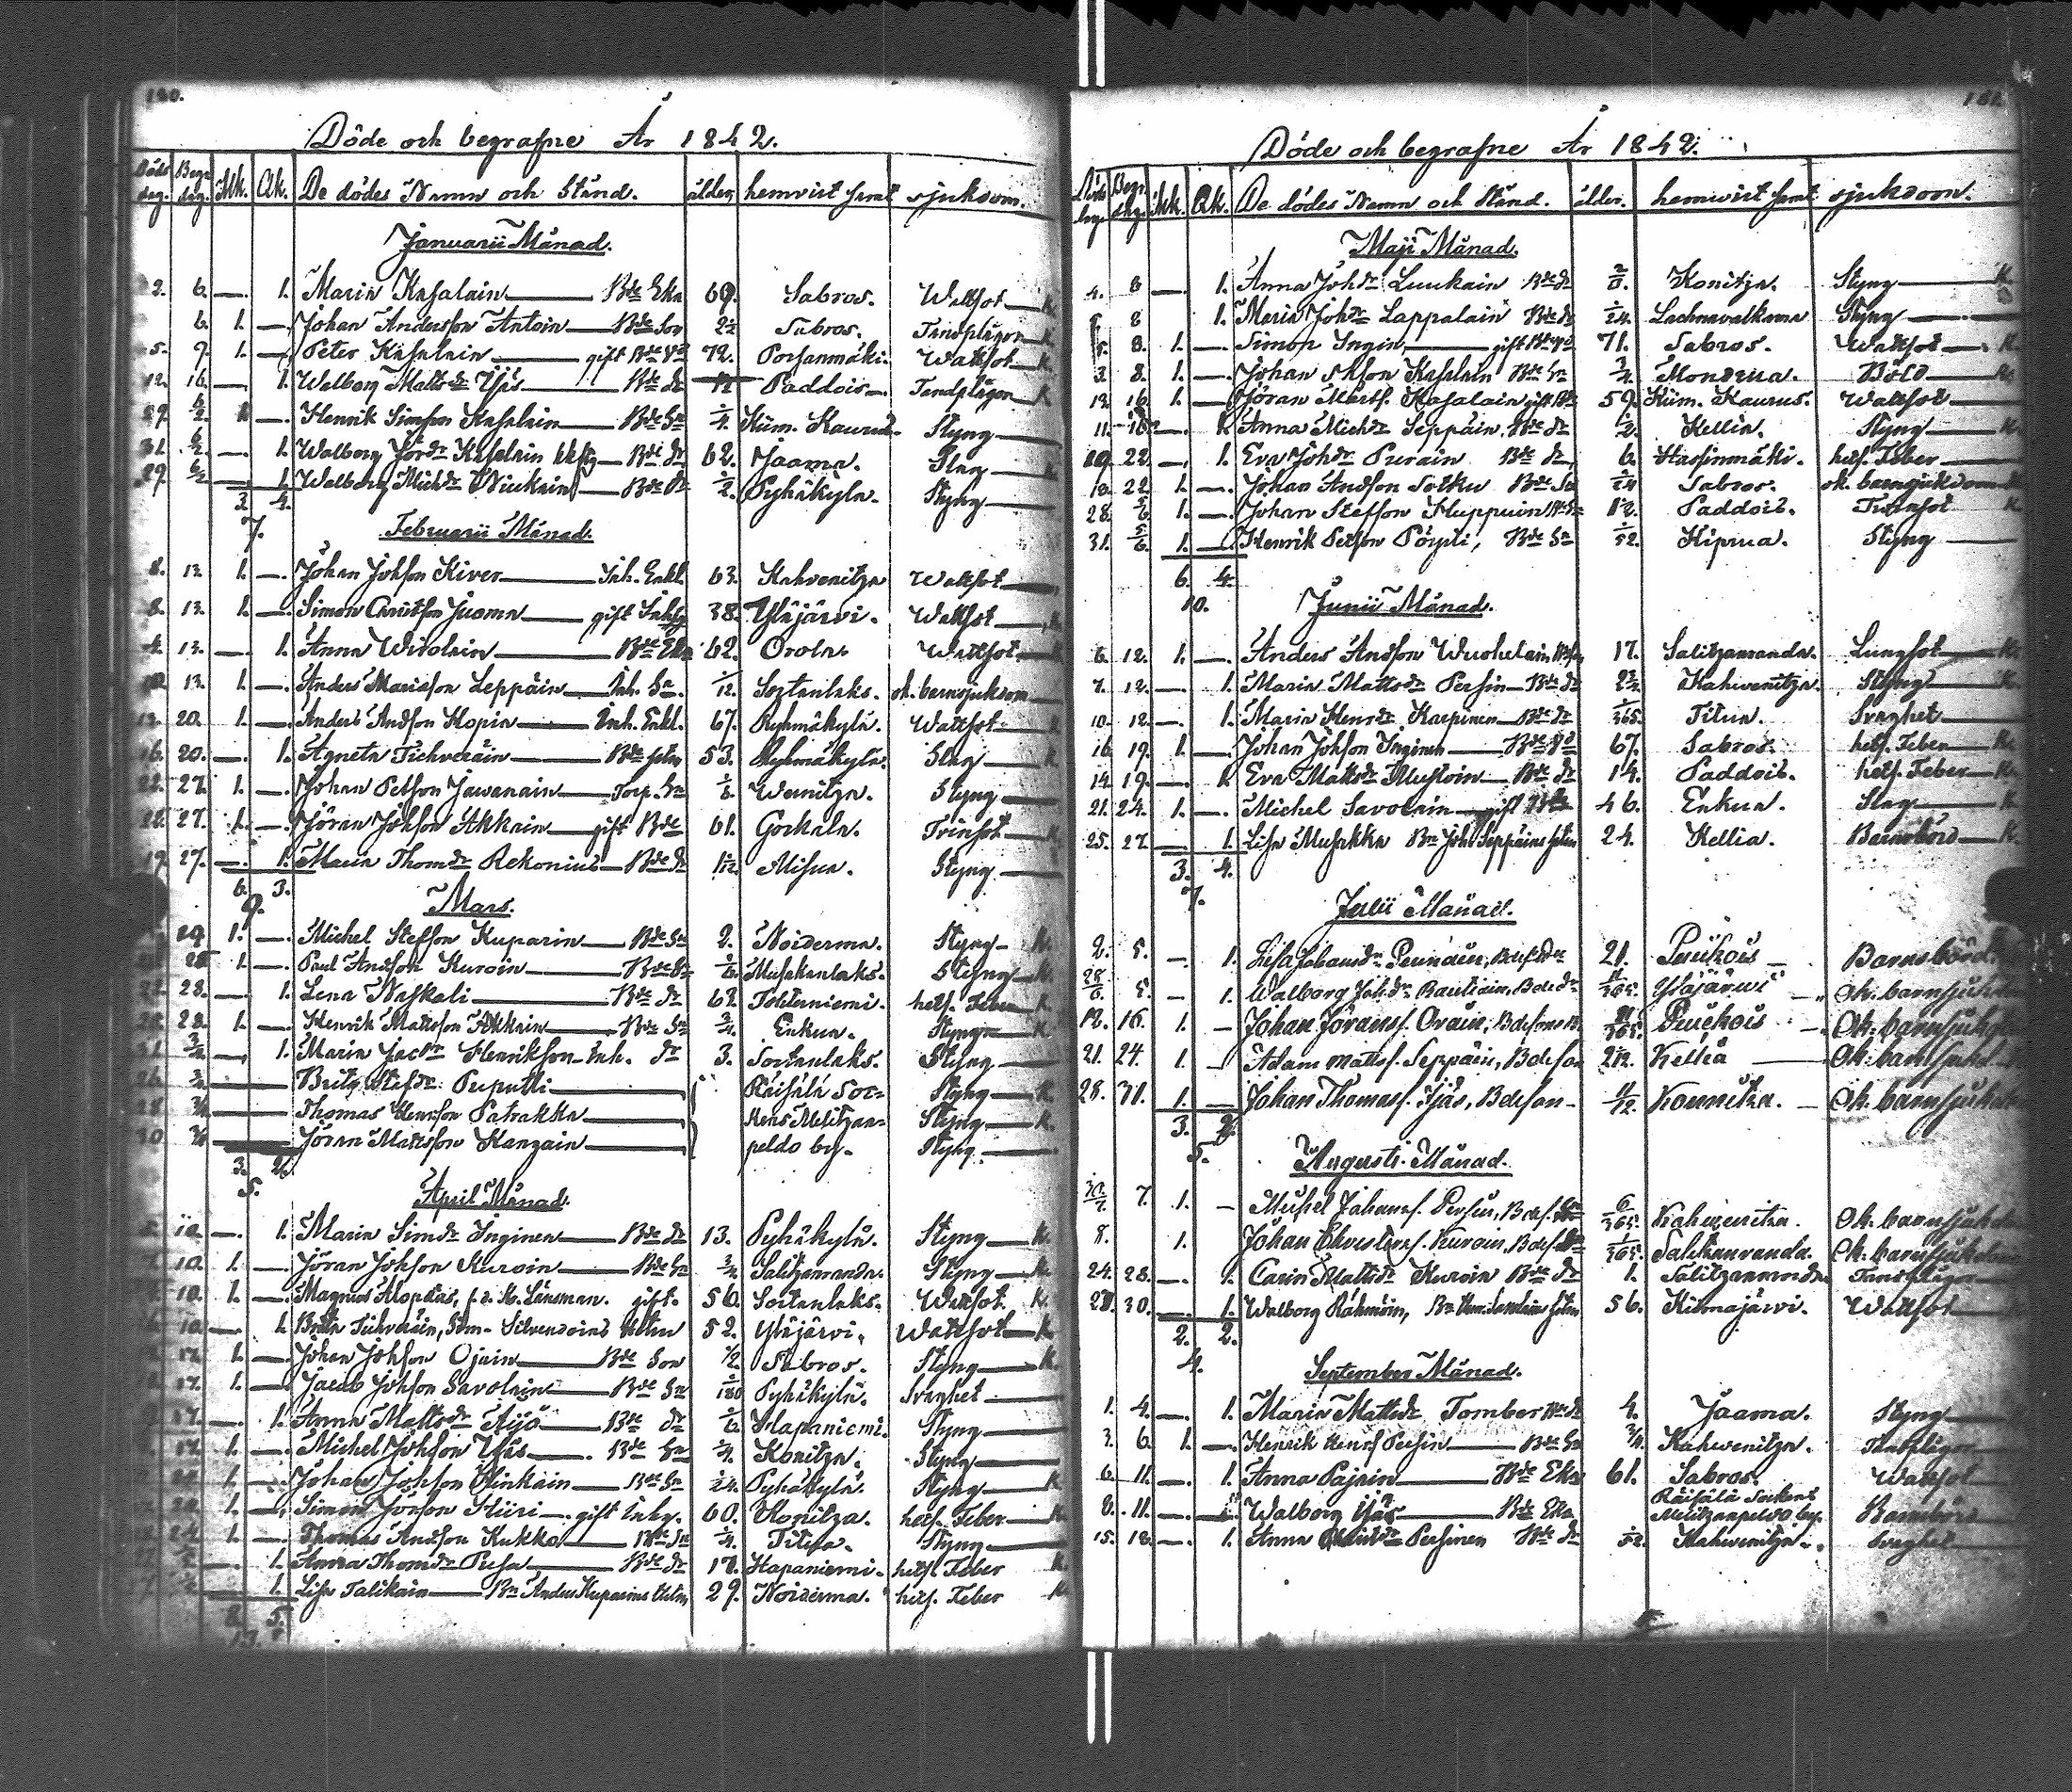 120.
Döde och begrafne År 1842.
Döds dag. Begr. dag. Mk. Qk. De dödes Namn och Stånd. ålder, hemvist samt sjukdom.
Januarii Månad.
2. 6. — 1. Maria Kasalain — Bde Eka 69. Sabros. Wattsot — K.
6. 1. — Johan Andersson Antoin — Bde Son 2½ Sabros. Tandplågor — K.
5. 9. 1. — Peter Kasalain — gift Bde 72. Porsanmäki. Wattsot — K.
12. 16. — 1. Walborg Matts dr Ijäs — Bde dr Paddois. Tandplågor — K
29. 6/2 1. — Henrik Simsson Kasalain — Bde Sn Kiim. Kaurus. Styng —
31. 6/2 — 1. Walborg Jör dr Kasalain — Bde dr 62. Jaama. Slag —
29. 6/2 — 1. Walborg Mich dr — Bde dr ½. Pyhäkylä. Styng —
3. 4.
7.
Februarii Månad.
8. 13. 1. — Johan Johsson Kiver — Inh. Enkl. 63. Kahvenitza Wattsot —
8. 13. 1. — Simon Christson Juoma — gift Inhy 38. Yläjärvi. Wattsot — K
4. 13. — 1. Anna Wirolain — Bde Eka 62. Orola. Wattsot — K
13. 1. — Anders Mariasson Leppäin — Inh. Sn. 1/12. Sortanlaks. ok. barnsjukdom
13. 20. 1. — Anders Andsson Hopia — Inh. Enkl. 67. Ryhmäkylä. Wattsot — K
16. 20. — 1. Agneta Tichveräin — Bde hstru 53. Ryhmäkylä. Slag — K
22. 27. 1. — Johan Petsson Jawanain — Torp. Sn Wernitza. Styng —
22. 27. 1. — Jöran Johsson Akkain — gift Bde 61. Gorkala. Trinsot — K
19. 27. — 1. Maria Thom dr Rekonius — Bde dr Misua. Styng —
6. 3.
9.
Mars.
19. 1. — Michel Stefson Kuparin — Bde Sn 2. Noiderma. Styng — K.
28 1. — Paul Andsson Kuroin — Bde Sn Musakanlaks. Styng — K.
28. — 1. Lena Naskali — Bde dr 62. Tohterniemi. hets. Feber K
28. 1. — Henrik Mattsson Akkain — Bde Sn ¾. Enkua. Styng — K.
31. 3/4 — 1. Maria Jac dr Henriksson — Inh. dr 3. Sortanlaks. Styng —
Brita Stef dr Puputti — Räisälä Soc= Styng — K.
Thomas Henrson Patrakka — kens Melitzan= Styng — K.
30 Jöran Mattsson Kanzain — peldo by. Styng. —
3. 2.
5.
April Månad.
10. — 1. Maria Sim dr Inginen — Bde dr 13. Pyhäkylä. Styng — K.
10. 1. — Jöran Johsson Kuroin — Bde Sn ¾. Salitzanranda. Styng — K.
10. 1. — Magnus Hoppius, f.d. K. Länsman. gift. 56. Sortanlaks. Wattsot. K.
10. — 1. Brita Tichveräin, Hstru 52. Yläjärvi. Wattsot — K
17. 1. — Johan Johsson Ojain — Bde Son ½. Sabros. Styng — K.
17. 1. — Jacob Johsson Savolain — Bde Sn Pyhäkylä. Svaghet —
17. — 1. Anna Matts dr Äijö — Bde dr Hapaniemi. Styng —
17. 1. — Michel Johsson Ijäs — Bde Sn ¼. Konitza. Styng —
24. 1. — Johan Johsson — Bde Sn Pyhäkylä. Styng — K
24. 1. — Simon Jönson Hiiri — gift Inhy. 60. Konitza. hets. Feber — K.
24. 1. — Thomas Andsson Kukko — Bde Sn ¼. Titua. Styng —
1. Anna Thom dr Pusa — Bde dr 18. Hapaniemi. hets. Feber K
1. Lisa Talikain — Bn Anders Kuparins Hstru 29. Noiderma. hets. Feber K.
8. 5.
13.
Döde och begrafne År 1842.
Döds dag. Begr. dag. Mk. Qk. De dödes Namn och Stånd. ålder. hemvist samt sjukdom.
Maji Månad.
4. 8 — 1. Anna Joh dr Luukain Bde dr Konitza. Styng — K.
8 1. Maria Joh dr Lappalain Bde dr 1/24. Styng —
5. 8. 1. — Simon Ingin — gift Bde 71. Sabros. Wattsot — K
3. 8. 1. — Johan Kasalain Bde Sn ¾. Mondrua. Böld — K.
12. 16 1. — Jöran Matts. Kasalain gift 59. Kiim. Kaurus. Wattsot —
11. — 1. Anna Mich dr Seppäin, Bde dr ½. Kellia. Styng — K
19. 22. — 1. Eva Joh dr Purain Bde dr 6. Hassinmäki. hets. Feber —
22. 1. — Johan Andson Sotku Bde Sn Sabros. ok. barnsjukdom
28. 5/6 1. — Johan Stefson Kuppuin Bde Sn Paddois. Trinsot K
31. 5/6. 1. — Henrik Petson Pörsti, Bde Sn 1/52. Hiprua. Styng —
6. 4.
10.
Junii Månad.
6. 12. 1. — Anders Andsson Wuohelain 17. Salitzanranda. Lungsot — K.
7. 12. — 1. Maria Matts dr Persin — Bde dr 2¾. Kahwenitza. Styng — K.
10. 12. — 1. Maria Henr dr Karpinen — Bde dr 1/365. Titua. Svaghet —
16. 19. 1. — Johan Johsson Inginen — Bde 67. Sabros. hets. Feber — K.
14. 19. — 1. Eva Matts dr Mustoin — Bde dr 14. Paddois. hets. Feber — K.
21. 24. 1. — Michel Savolain — gift Bde 46. Enkua. Slag — K
25. 27. — 1. Lisa Musakka Bn Joh. Seppäins hstru 24. Kellia. Barnsbörd — K.
3. 4.
7.
Julii Månad.
2. 5. — 1. Lisa Johans dr Punnain, 21. Puickois — Barnsbörd.
28/6. 5. — 1. Walborg Joh. dr Rautiain, Bde dr Yläjärwi — Ok. barnsjukd
12. 16. 1. — Johan Jöransf. Orain, Puickois — Ok. barnsjukd
21. 24. 1. — Adam Mattsf. Seppäin, Bdeson Kellia — Ok. barnsjukd
28. 31. 1. — Johan Thomasf. Ijäs, Bdeson — Konnitza. — Ok. barnsjukd
3. 2.
5.
Augusti Månad.
30/7 7. 1. — Michel Johansf. Persin, 6/365. Kahwenitza. Ok. barnsjukd
8. 1. Johan Christersf. Kuroin, 1/365. Salitzanranda. Ok. barnsjukdom
24. 28. — 1. Carin Matts dr Kuroin Bde dr 1. Salitzanranda Tandplågor
28. 30. — 1. Walborg Rähmöin, hstru 56. Kiimajärvi. Wattsot —
2. 2.
4.
September Månad.
1. 4. — 1. Maria Matts dr Tomber Bde dr 4. Jaama. Styng —
3. 6. 1. — Henrik Henrs. Persin — Bde Sn ¾. Kahwenitza. Tandplågor
6. 11. — 1. Anna Pajain — Bde Eka 61. Sabros. Wattsot
8. 11. — 1. Walborg Ijäs — Bde Eka Räisälä Sockens Melitzanpeldo by. Barnbörd
15. 18. — 1. Anna Persinen Bde dr 1/52. Kahwenitza. Svaghet